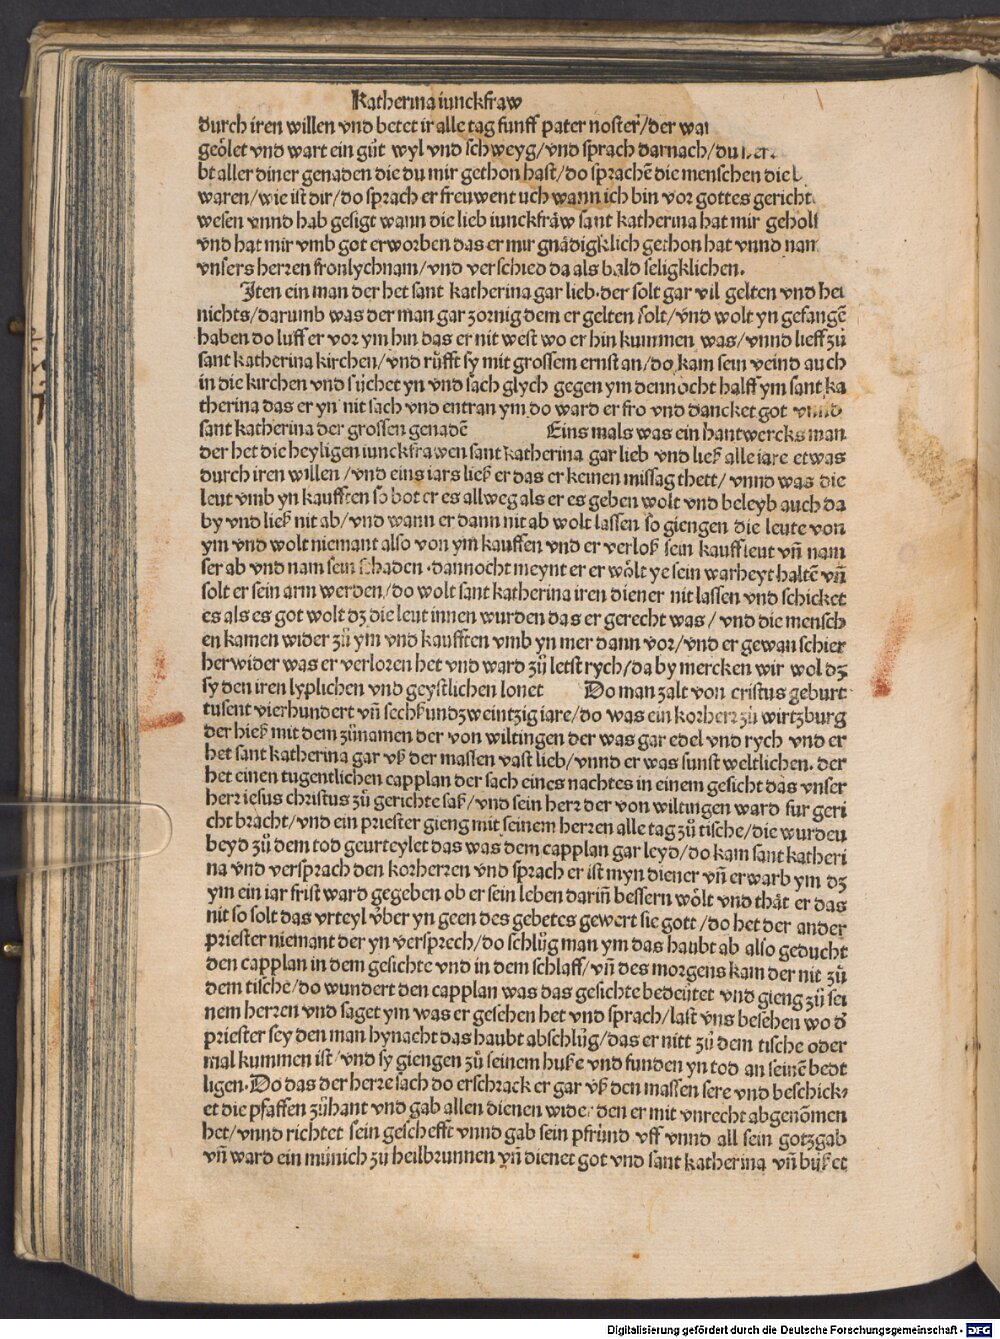 Katherina iunckfraw
durch iren willen vnd betet ir alle tag funff pater noster/der
geölet vnd wart ein gůt wyl vnd schweyg/vnd sprach darnach/du
bt aller diner genaden die du mir gethon hast/do sprachē die menschen die
waren/wie ist dir/do sprach er freuwent uch wann ich bin vor gottes gericht
wesen vnnd hab gesigt wann die lieb iunckfraw sant katherina hat mir geholf
vnd hat mir vmb got erworben das er mir gnådigklich gethon hat vnnd nam
vnsers herren fronlychnam/vnd verschied da als bald seligklichen.
Iten ein man der het sant katherina gar lieb.der solt gar vil gelten vnd het
nichts/darumb was der man gar zornig dem er gelten solt/vnd wolt yn gefangē
haben do luff er vor ym hin das er nit west wo er hin kummen was/vnnd lieff zů
sant katherina kirchen/vnd růfft sy mit grossem ernst an/do kam sein veind auch
in die kirchen vnd sůchet yn vnd sach glych gegen ym dennocht halff ym sant ka
therina das er yn nit sach vnd entran ym do ward er fro vnd dancket got vnnd
sant katherina der grossen genadē Eins mals was ein hantwercks man
der het die heyligen iunckfrawen sant katherina gar lieb vnd ließ alle iare etwas
durch iren willen /vnd eins iars ließ er das er keinen missag thett/ vnnd was die
leut vmb yn kaufften so bot er es allweg als er es geben wolt vnd beleyb auch da
by vnd ließ nit ab/vnd wann er dann nit ab wolt lassen so giengen die leute von
ym vnd wolt niemant also von ym kauffen vnd er verloß sein kauffleut vñ nam
ser ab vnd nam sein schaden .dannocht meynt er er wölt ye sein warheyt haltē vñ
solt er sein arm werden/do wolt sant katherina iren diener nit lassen vnd schicket
es als es got wolt dz die leut innen wurden das er gerecht was/ vnd die mensch
en kamen wider zů ym vnd kaufften vmb yn mer dann vor/vnd er gewan schier
herwider was er verloren het vnd ward zů letst rych/da by mercken wir wol dz
sy den iren lyplichen vnd geystlichen lonet Do man zalt von cristus geburt
tusent vierhundert vñ sechßundzweintzig iare/do was ein korherr zů wirtzburg
der hieß mit dem zůnamen der von wiltingen der was gar edel vnd rych vnd er
het sant katherina gar vß der massen vast lieb/vnnd er was sunst weltlichen. der
het einen tugentlichen capplan der sach eines nachtes in einem gesicht das vnser
herr iesus christus zů gerichte saß/vnd sein herr der von wiltingen ward fur geri
cht bracht/vnd ein priester gieng mit seinem herren alle tag zů tische/die wurden
beyd zů dem tod geurteylet das was dem capplan gar leyd/do kam sant katheri
na vnd versprach den korherren vnd sprach er ist myn diener vñ erwarb ym dz
ym ein iar frist ward gegeben ob er sein leben dariñ bessern wölt vnd thåt er das
nit so solt das vrteyl v̊ber yn geen des gebetes gewert sie gott/do het der ander
priester niemant der yn versprech/do schlůg man ym das haubt ab also geducht
den capplan in dem gesichte vnd in dem schlaff/vñ des morgens kam der nit zů
dem tische/do wundert den capplan was das gesichte bedeůtet vnd gieng zů sei
nem herren vnd saget ym was er gesehen het vnd sprach/last vns besehen wo d̄
priester sey den man hynacht das haubt abschlůg/das er nitt zů dem tische oder
mal kummen ist/vnd sy giengen zů seinem huße vnd funden yn tod an seinē bedt
ligen.Do das der herre sach do erschrack er gar vß den massen sere vnd beschick-
et die pfaffen zůhant vnd gab allen dienen wider den er mit vnrecht abgenōmen
het/vnnd richtet sein gescheft vnnd gab sein pfrůnd vff vnnd all sein gotzgab
vñ ward ein můnich zů heilbrunnen vñ dienet got vnd sant katherina vñ bůßet
Digitalisierung gefördert durch die Deutsche Forschungsgemeinschaft - DFG